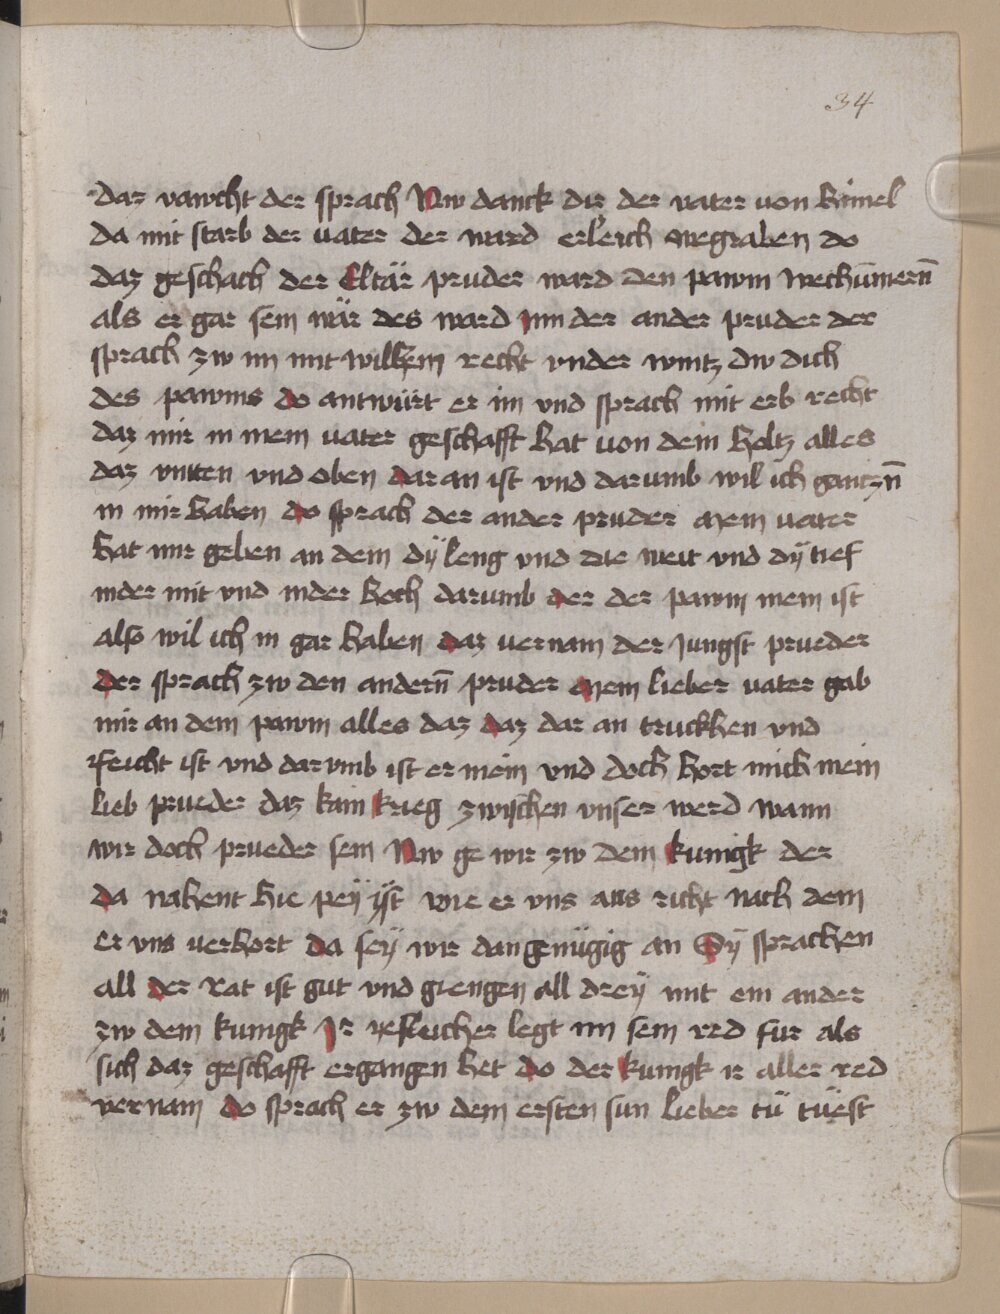 34
daz rawcht der sprach Nw danck dir der vater von himel
da mit starb der vater der ward erleich wegraben do
daz geschach der Eltär pruder ward den pawm wechümern̄
als er gar sein wär des ward inn der ander pruder der
sprach zw im mit willem recht vnder wintz dw dich
des pawms do antwürt er im vnd sprach mit erb recht
daz mir in mein vater geschafft hat von dem holtz alles
daz vntten vnd oben daran ist vnd darumb wil ich gantzn̄
in mir haben do sprach der ander pruder mein vater
hat mir geben an dem dÿ leng vnd die weit vnd dÿ tief
inder mit vnd inder hoch darumb der der pawm mein ist
also wil ich in gar haben daz vernam der Jungst prueder
der sprach zw den andern̄ pruder mein lieber vater gab
mir an dem pawm alles daz daz dar an truckhen vnd
feicht ist vnd darvmb ist er mein vnd doch hort mich mein
lieb prueder daz kain krieg zwischen vnser werd wann
wir doch prueder sein Nw ge wir zw dem kunigk der
da nahent hie peÿ ÿst wie er vns aus richt nach dem
er vns verhort da seÿ wir dan genügig an Sÿ sprachen
all der rat ist gut vnd giengen all dreÿ mit ein ander
zw dem kunigk Ir yesleicher legt im sein red fur als
sich daz geschafft ergangen het do der kunigk ir aller red
vernam do sprach er zw dem ersten sun lieber tü tüest